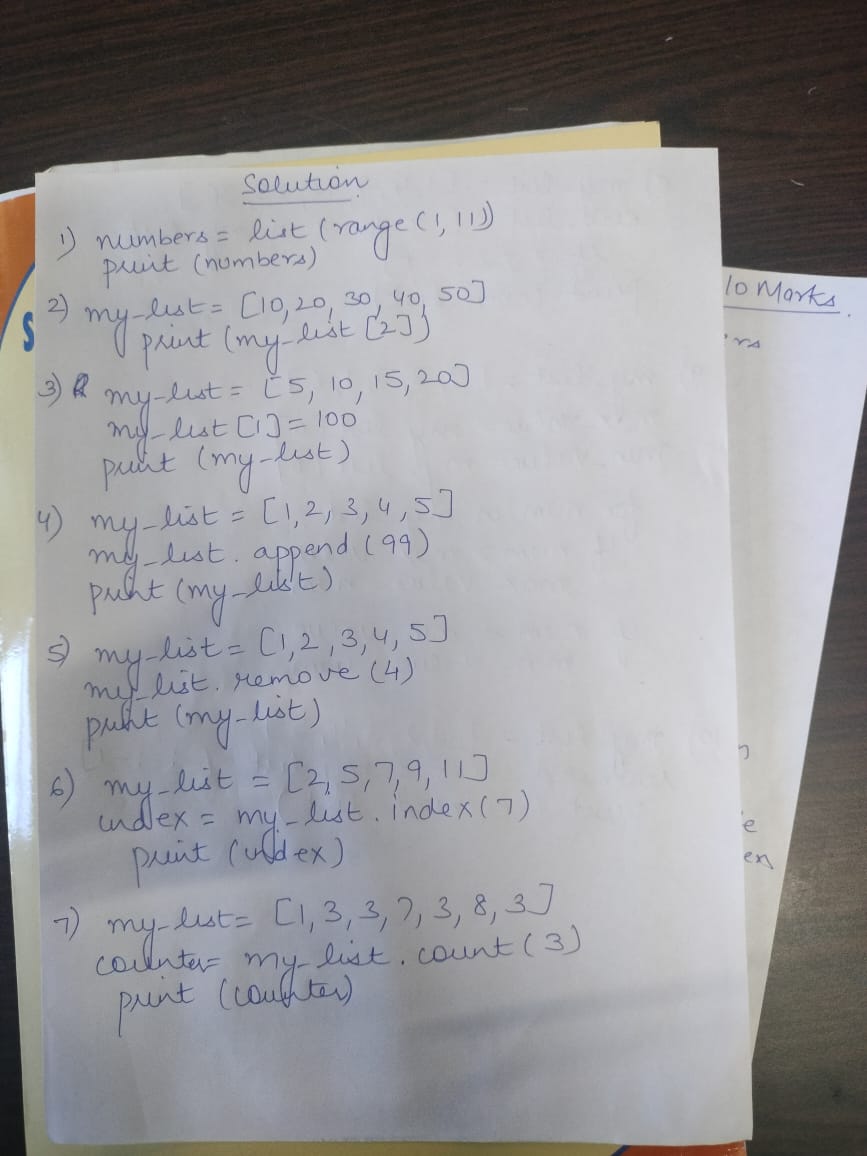 Solution
1) numbers = list (range (1, 11))
print (numbers)
2) my-list = [10, 20, 30, 40, 50]
print (my-list [2])
3) my-list = [5, 10, 15, 20]
my-list [1] = 100
print (my-list)
4) my-list = [1, 2, 3, 4, 5]
my-list. append (99)
print (my-list)
5) my-list = [1, 2, 3, 4, 5]
my-list. remove (4)
print (my-list)
6) my-list = [2, 5, 7, 9, 11]
index = my-list. index (7)
print (index)
7) my-list = [1, 3, 3, 7, 3, 8, 3]
counter = my-list. count (3)
print (counter)
10 Marks.
rs
e
en
S